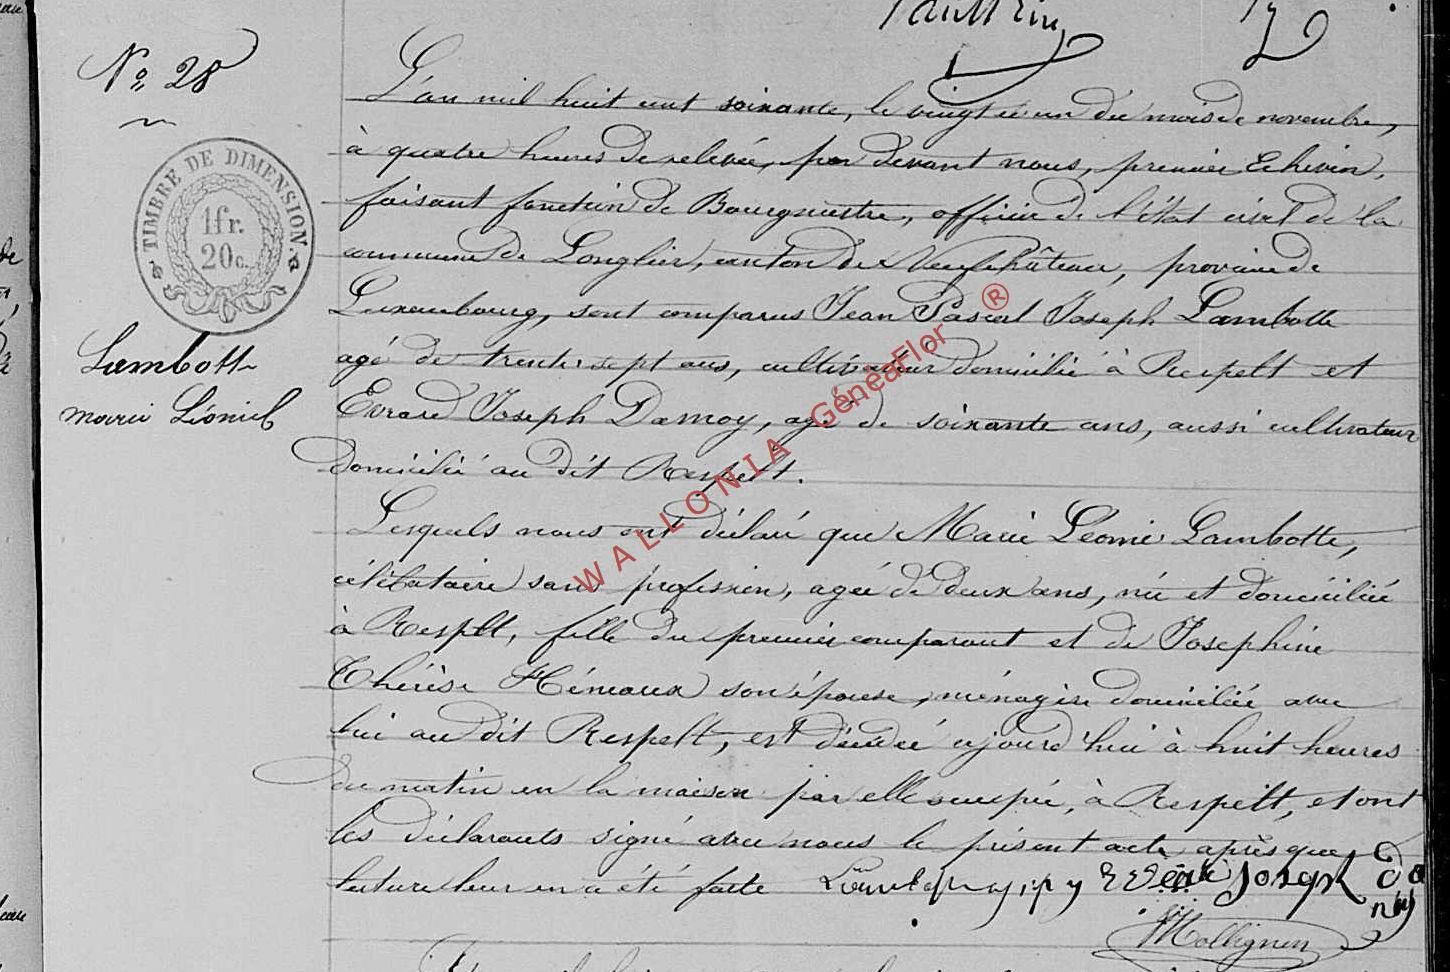 No 28
TIMBRE DE DIMENSION.
1fr.
20c.
Lambotte
marie Léonie
L'an mil huit cent soixante, le vingt et un du mois de novembre,
à quatre heures de relevée, par devant nous, premier Echevin,
faisant fonction de Bourgmestre, officier de l'état civil de la
commune de Longlier, canton de Neufchâteau, province de
Luxembourg, sont comparus Jean Pascal Joseph Lambotte
agé de trente sept ans, cultivateur domicilié à Respelt et
Evrard Joseph Damoy, agé de soixante ans, aussi cultivateur
domicilié au dit Respelt.
Lesquels nous ont déclaré que Marie Léonie Lambotte,
célibataire sans profession, agée de deux ans, née et domiciliée
à Respelt, fille du premier comparant et de Josephine
Thérèse Héneaux son épouse, ménagère domiciliée avec
lui au dit Respelt, est décédée aujourd'hui à huit heures
du matin en la maison par elle occupée, à Respelt, et ont
les déclarants signé avec nous le présent acte après que
lecture leur en a été faite Evrard Joseph Da
moy
WALLONIA GénéaFlor ®